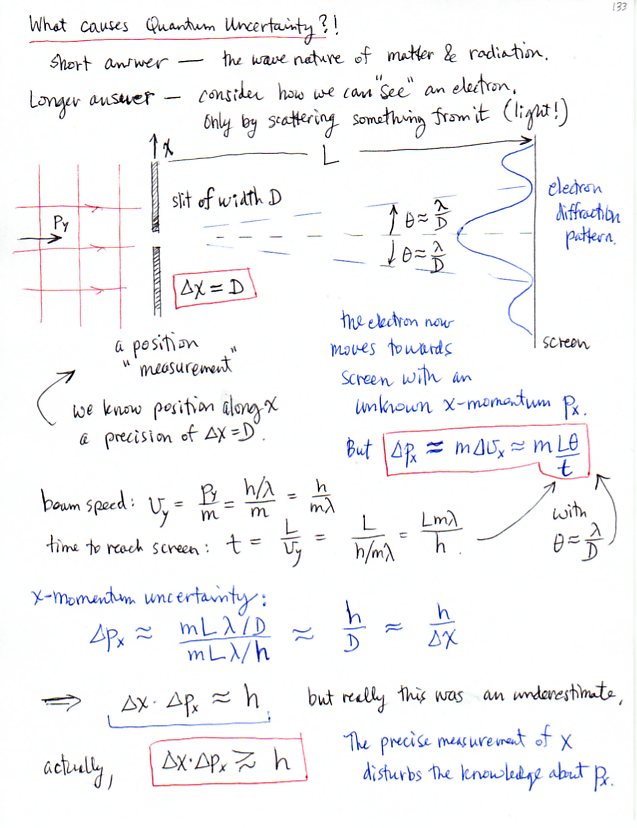 133
What causes Quantum Uncertainty?!
Short answer — the wave nature of matter & radiation.
Longer answer — consider how we can "see" an electron.
Only by scattering something from it (light!)
x
L
slit of width D
Py
θ≈ λ/D
θ≈ λ/D
electron
diffraction
pattern.
Δx = D
screen
a position
"measurement"
we know position along x
a precision of Δx = D.
the electron now
moves towards
screen with an
unknown x-momentum px.
But Δpx ≈ mΔvx ≈ m Lθ/t
beam speed: vy = Py/m = h/λ/m = h/mλ
time to reach screen: t = L/vy = L/h/mλ = Lmλ/h.
with
θ≈ λ/D
x-momentum uncertainty:
Δpx ≈ mLλ/D / mLλ/h ≈ h/D ≈ h/Δx
⟹ Δx · Δpx ≈ h but really this was an underestimate,
actually, Δx·Δpx ≳ h
The precise measurement of x
disturbs the knowledge about px.